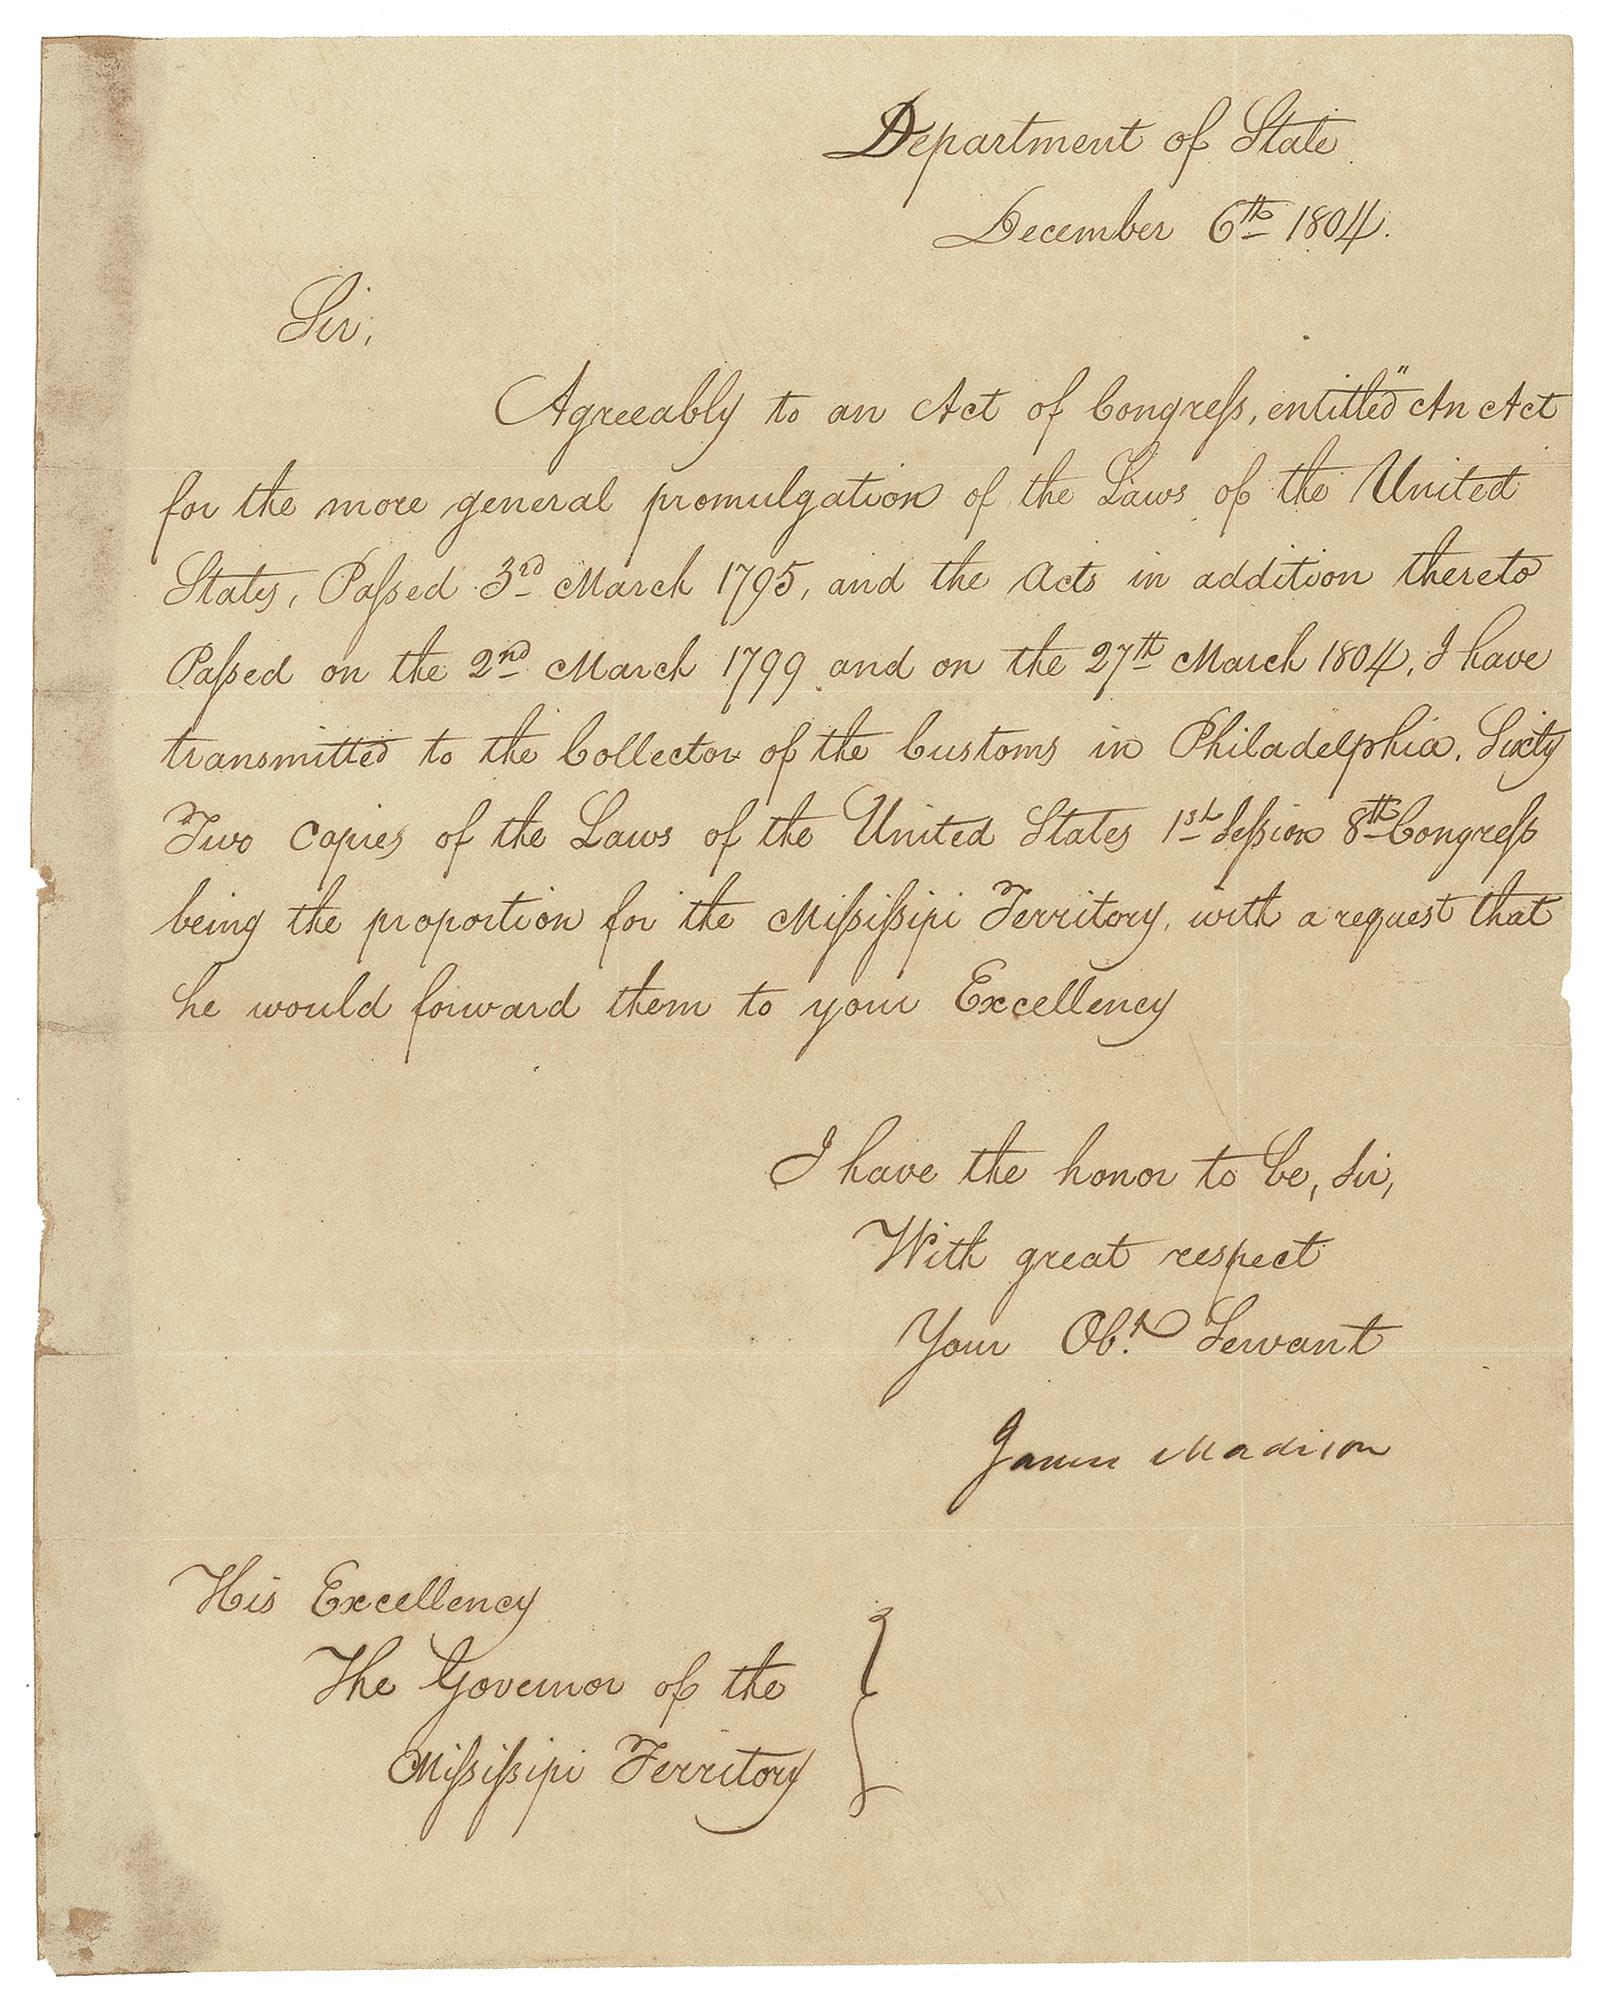 Department of State
December 6th 1804.
Sir,
Agreeably to an Act of Congreſs, entitled "An Act
for the more general promulgation of the Laws of the United
States, Paſsed 3rd March 1795, and the Acts in addition thereto
Paſsed on the 2nd March 1799 and on the 27th March 1804, I have
transmitted to the Collector of the Customs in Philadelphia, Sixty
Two Copies of the Laws of the United States 1st Seſsion 8th Congreſs
being the proportion for the Miſsiſsipi Territory, with a request that
he would forward them to your Excellency
I have the honor to be, Sir,
With great respect
Your Obt. Servant
James Madison
His Excellency
The Governor of the
Miſsiſsipi Territory